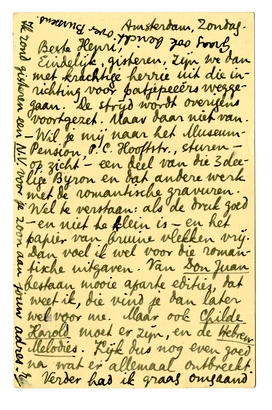 Amsterdam, Zondag.
Graag ook bericht over Bussens.
Beste Henri,
Eindelijk, gisteren, zijn we dan
met krachtige herrie uit die in-
richting voor patjepeeërs wegge-
gaan. De strijd wordt overigens
voortgezet. Maar daar niet van.
– Wil je mij naar het Museum-
Pension, P.C. Hooftstr., sturen –
op zicht – een deel van die 3 dee-
lige Byron en dat andere werk
met de romantische gravuren.
Wel te verstaan: als de druk goed
– en niet te klein is – en het
papier van bruine vlekken vrij.
dan voel ik wel voor die roman-
tische uitgaven. Van Don Juan
bestaan mooie aparte edities, dat
weet ik, die vind je dan later
wel voor me. Maar ook Childe
Harold moet er zijn, en de Hebrew
Melodies. Kijk dus nog even goed
na wat er allemaal ontbreekt.
Verder had ik graag omgaand
Ik zond gisteren een N.V. voor je zoon aan jouw adres.